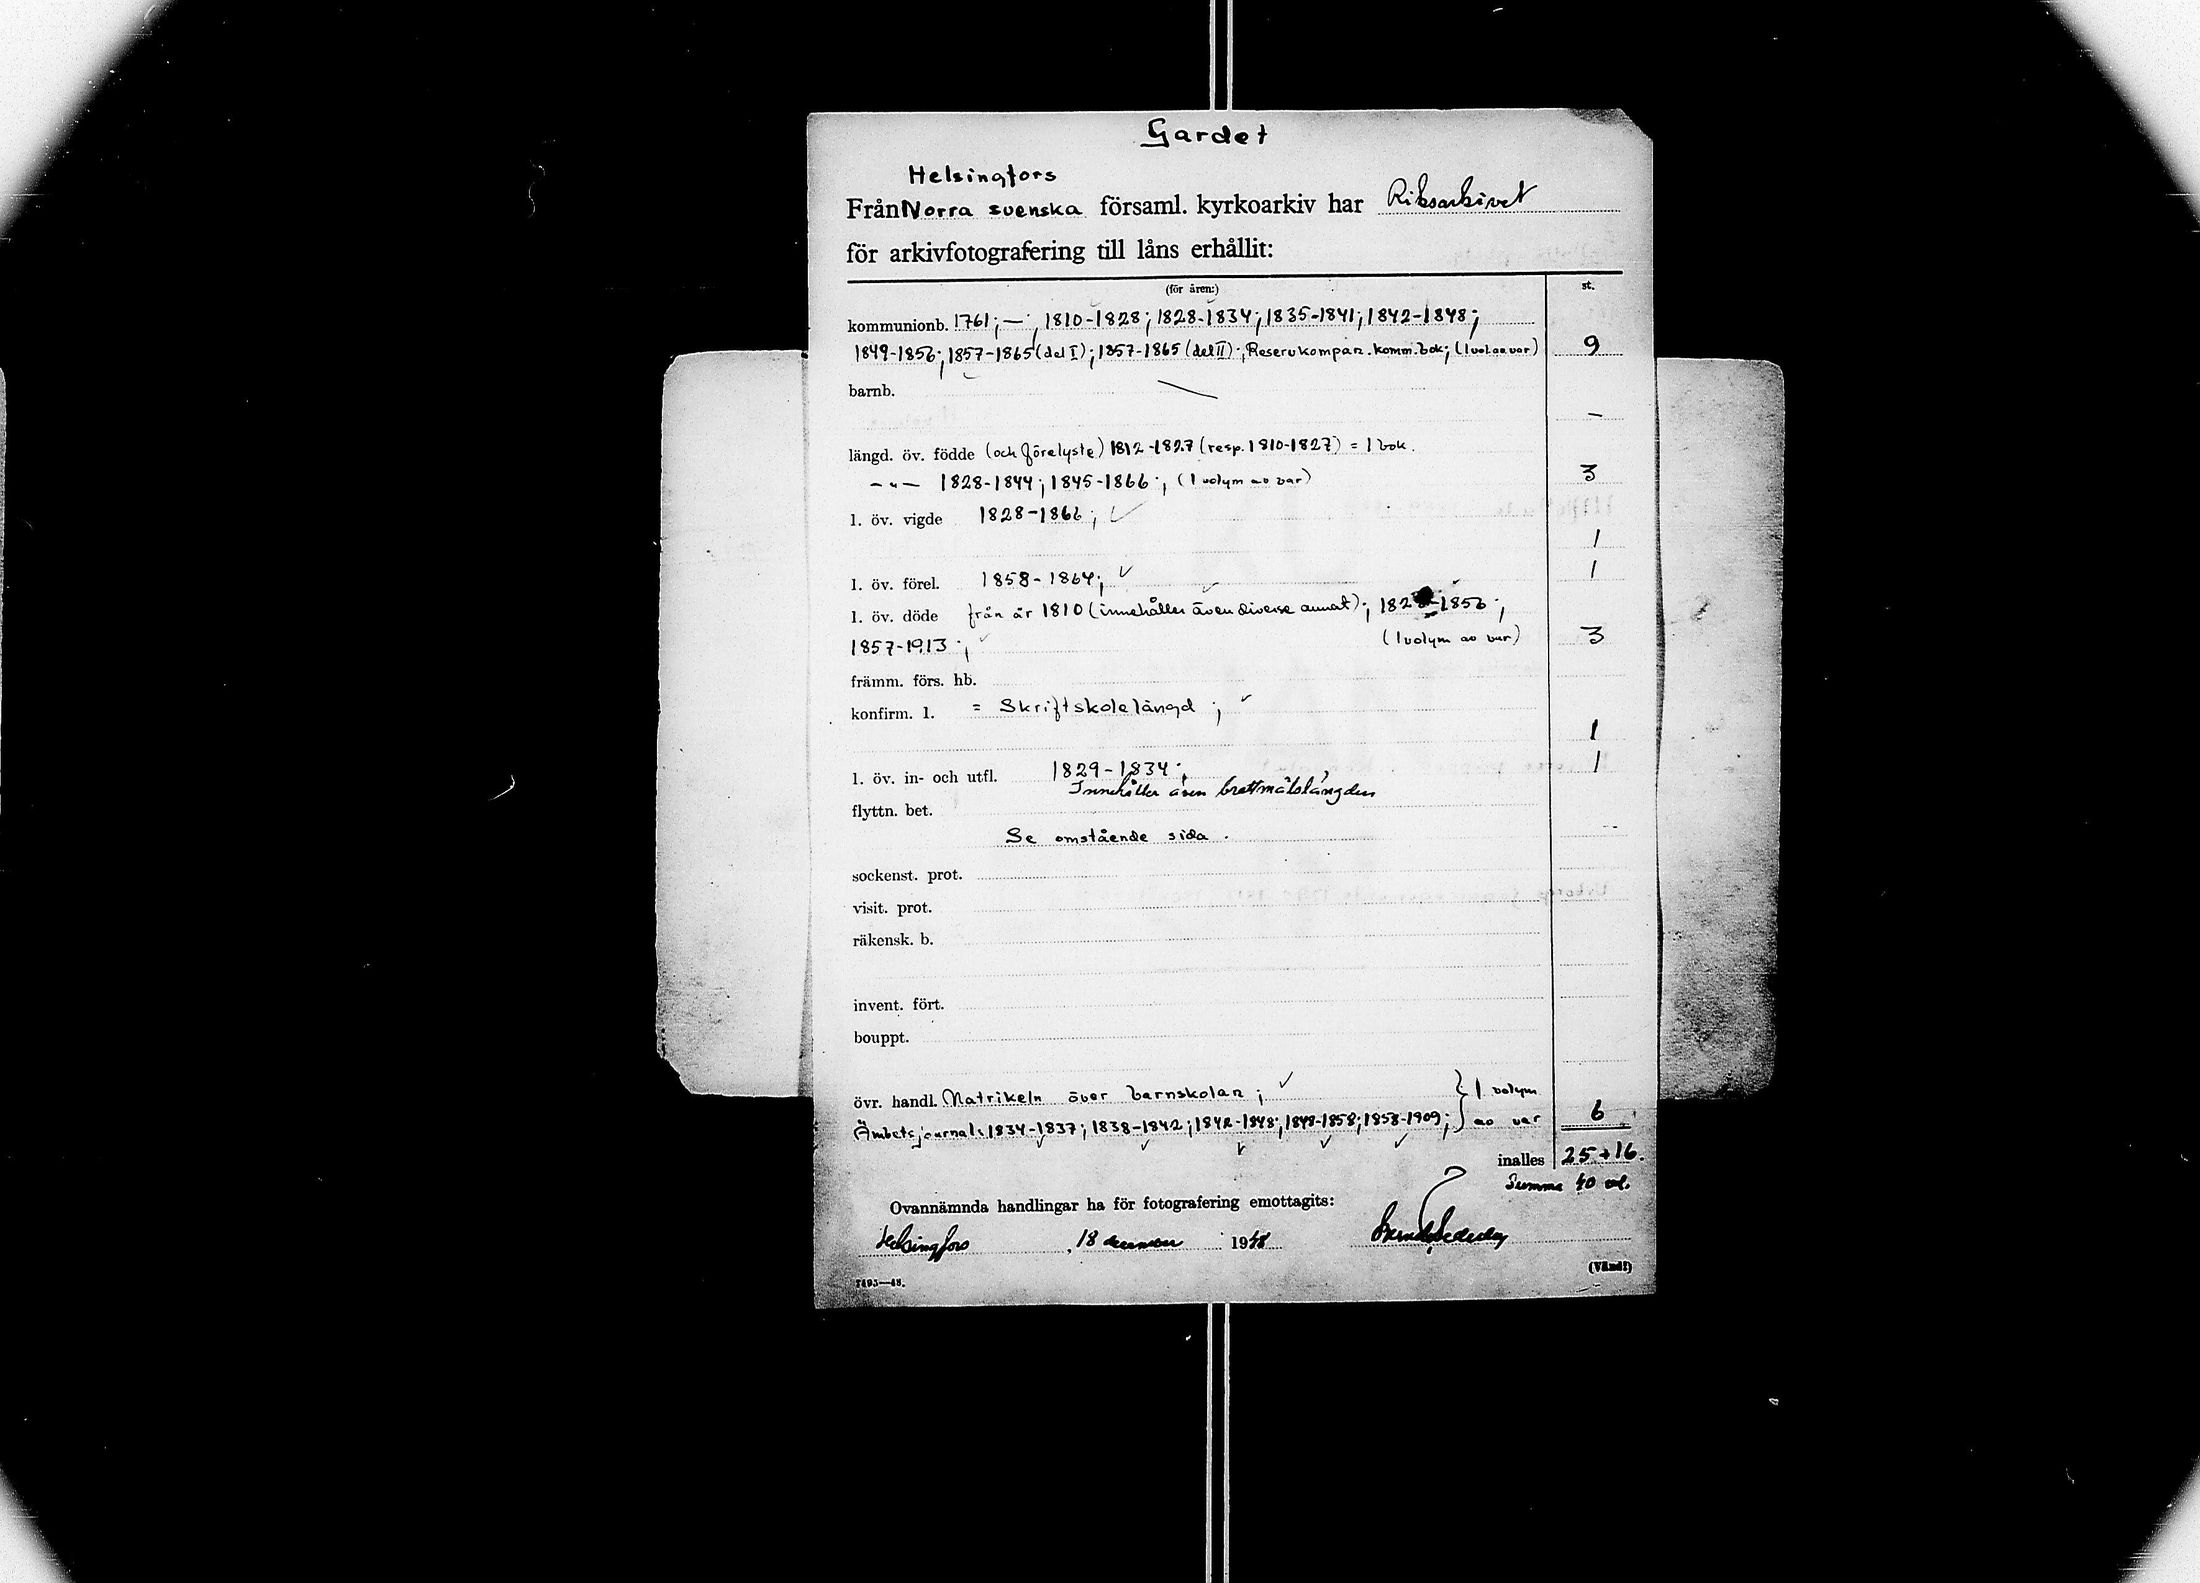 Gardet
Helsingfors
Från Norra svenska församl. kyrkoarkiv har Riksarkivet
för arkivfotografering till låns erhållit:
(för åren:) st.
kommunionb. 1761; —; 1810-1828; 1828-1834; 1835-1841; 1842-1848;
1849-1856; 1857-1865 (del I); 1857-1865 (del II); Reservkompan. komm.bok; (1 vol av var) 9
barnb. —
–
längd. öv. födde (och förelyste) 1812-1827 (resp. 1810-1827) = 1 bok.
–"– 1828-1844; 1845-1866; (1 volym av var) 3
l. öv. vigde 1828-1866;
1
l. öv. förel. 1858-1864; 1
l. öv. döde från år 1810 (innehåller även diverse annat); 1828-1856;
1857-1913; (1 volym av var) 3
främm. förs. hb.
konfirm. l. = Skriftskolelängd;
1
l. öv. in- och utfl. 1829-1834; 1
Innehåller även brottmålslängden
flyttn. bet.
Se omstående sida.
sockenst. prot.
visit. prot.
räkensk. b.
invent. fört.
bouppt.
övr. handl. Matrikeln över barnskolan; } 1 volym
Ämbetsjournal: 1834-1837; 1838-1842; 1842-1848; 1848-1858; 1858-1909; av var 6
inalles 25+16.
Summa 40 vol.
Ovannämnda handlingar ha för fotografering emottagits:
Helsingfors, 18 december 1948
(Vänd!)
7495—48.